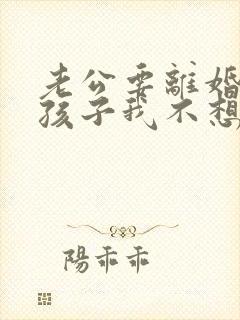 老公要離婚
孩子我不想
陽乖乖